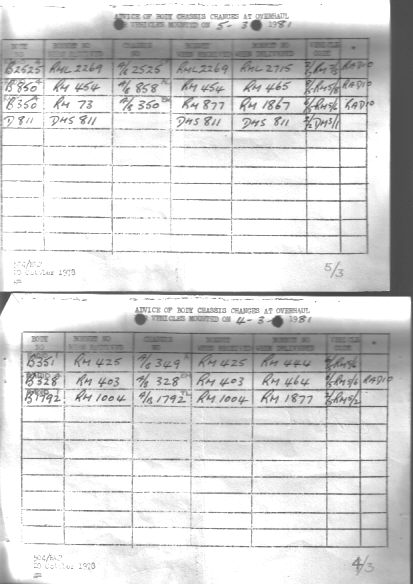 ADVICE OF BODY CHASSIS CHANGES AT OVERHAUL
VEHICLES MOUNTED ON 5-3-1981
BODY NO BONNET NO WHEN RECEIVED CHASSIS NO BONNET WHEN RECEIVED BONNET NO WHEN DELIVERED VEHICLE CODE *
B2525 RML 2269 2525 RML 2269 RML 2715 RADIO
B850 RM 454 858 RM 454 RM 465
B350 RM 73 350 RM 877 RM 1867 RADIO
D811 DMS 811 DMS 811 DMS 811
504/
20 October 1978
5/3
ADVICE OF BODY CHASSIS CHANGES AT OVERHAUL
VEHICLES MOUNTED ON 4-3-1981
BODY NO BONNET NO WHEN RECEIVED CHASSIS NO BONNET WHEN RECEIVED BONNET NO WHEN DELIVERED VEHICLE CODE *
B351 RM 425 349 RM 425 RM 444
B328 RM 403 328 RM 403 RM 464 RADIO
B1792 RM 1004 1792 RM 1004 RM 1877
504/
20 October 1978
4/3